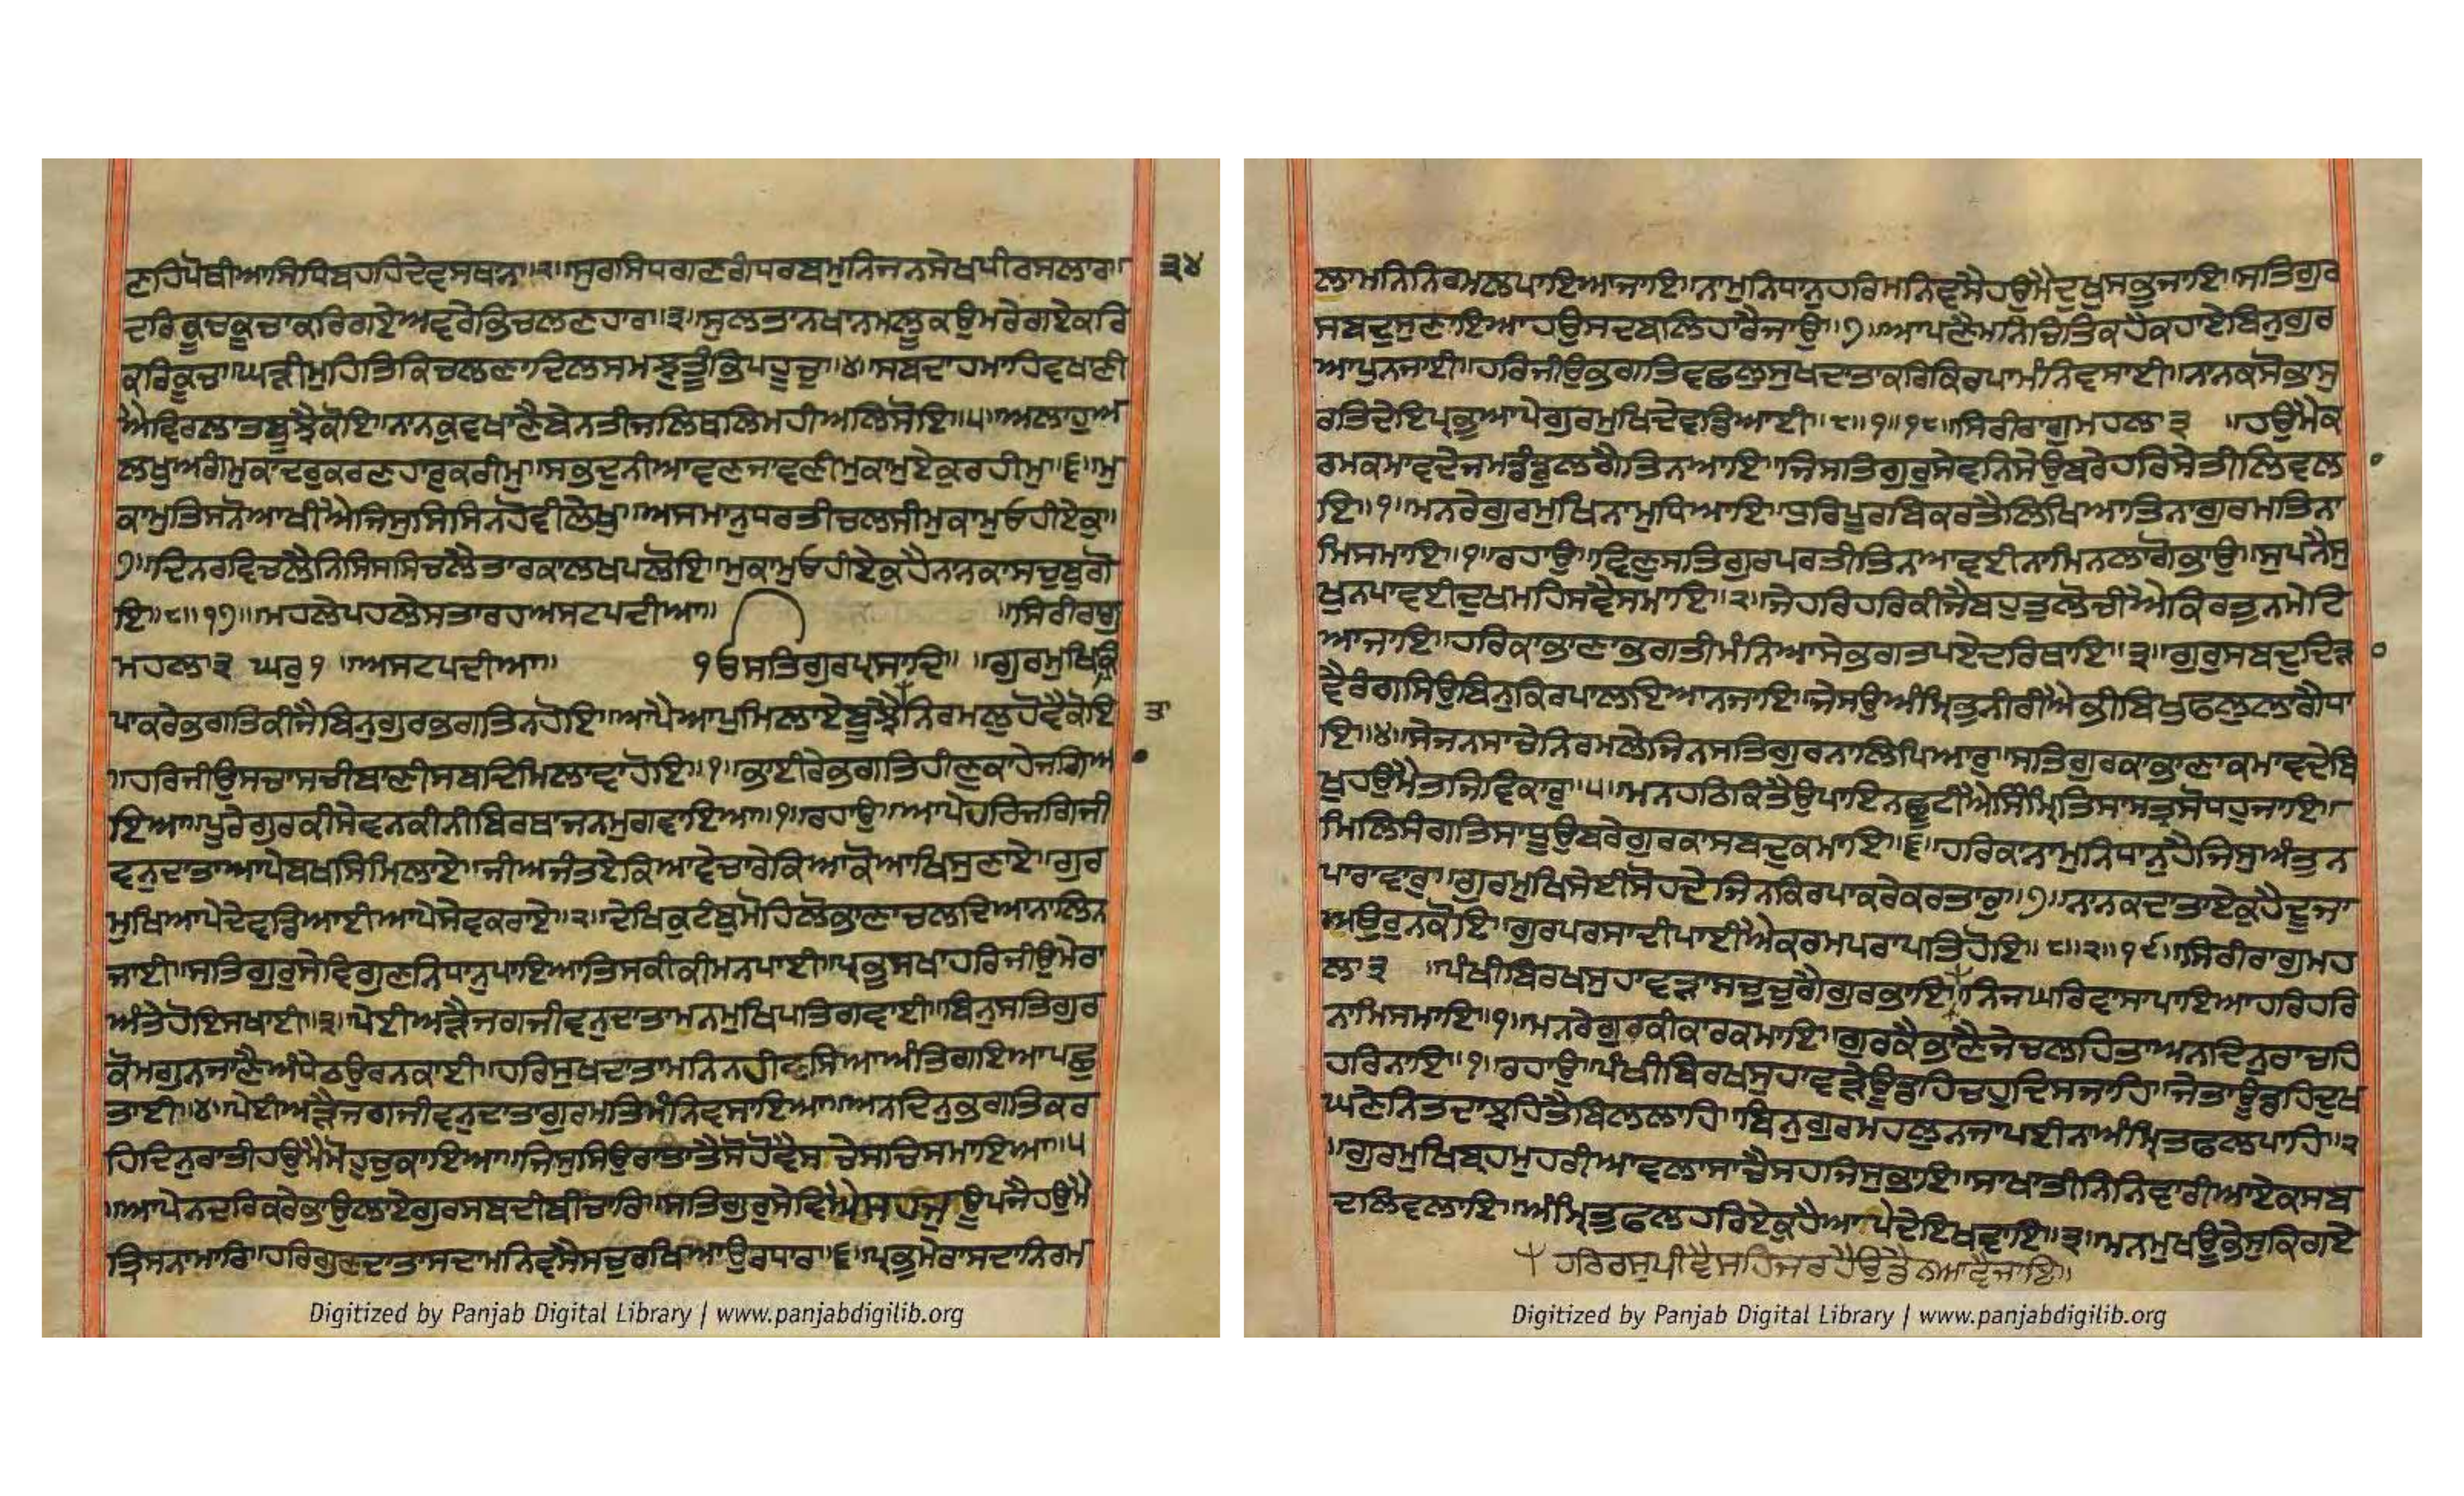 ਣਹਿਪੋਥੀਆਸਿਮਿਧਹਹਿਦੇਵਸਥਨਾ॥੨॥ਸੁਰਸਿਧਗਣਗੰਧਰਬਮੁਨਿਜਨਸੇਖਪੀਰਸਲਾਰ॥ ੩੪
ਦਰਿਕੂਚਕੂਚਾਕਰਿਗਏਅਵਰੇਭਿਚਲਣਹਾਰ॥੩॥ਸੁਲਤਾਨਖਾਨਮਲੂਕਉਮਰੇਗਏਕਰਿ
ਕਰਿਕੂਚੁ॥ਘੜੀਮੁਹਤਿਕਿਚਲਣਾਦਿਲਸਮਝੁਤੂੰਭਿਪਹੂਚੁ॥੪॥ਸਬਦਾਹਮਾਹਿਵਖਾਣੀ
ਐਵਿਰਲਾਤਬੂਝੈਕੋਇ॥ਨਾਨਕੁਵਖਾਣੈਬੇਨਤੀਜਲਿਥਲਿਮਹੀਅਲਿਸੋਇ॥੫॥ਅਲਾਹੁਅ
ਲਖੁਅਗੰਮੁਕਾਦਰੁਕਰਣਹਾਰੁਕਰੀਮੁ॥ਸਭਦੁਨੀਆਵਣਜਾਵਣੀਮੁਕਾਮੁਏਕੁਰਹੀਮੁ॥੬॥ਮੁ
ਕਾਮੁਤਿਸਨੋਆਖੀਐਜਿਸੁਸਿਸਿਨਹੋਵੀਲੇਖੁ॥ਅਸਮਾਨੁਧਰਤੀਚਲਸੀਮੁਕਾਮੁਓਹੀਏਕੁ॥
੭॥ਦਿਨਰਵਿਚਲੈਨਿਸਿਸਸਿਚਲੈਤਾਰਕਾਲਖਪਲੋਇ॥ਮੁਕਾਮੁਓਹੀਏਕੁਹੈਨਨਕਾਸਚੁਬੁਗੋ
ਇ॥੮॥੧੭॥ਮਹਲੇਪਹਲੇਸਤਾਰਹਅਸਟਪਦੀਆ॥ ॥ਸਿਰੀਰਗੁ
ਮਹਲਾ੩ ਘਰੁ੧ ॥ਅਸਟਪਦੀਆ॥ ੧ਓਸਤਿਗੁਰਪ੍ਰਸਾਦਿ॥ ॥ਗੁਰਮੁਖਿਕ੍ਰਿ
ਪਾਕਰੇਭਗਤਿਕੀਜੈਬਿਨੁਗੁਰਭਗਤਿਨਹੋਇ॥ਆਪੈਆਪੁਮਿਲਾਏਬੂਝੈਨਿਰਮਲੁਹੋਵੈਕੋਇ ਤਾ
॥ਹਰਿਜੀਉਸਚਾਸਚੀਬਾਣੀਸਬਦਿਮਿਲਾਵਾਹੋਇ॥੧॥ਭਾਈਰੇਭਗਤਿਹੀਣੁਕਾਹੇਜਗਿਆ
ਇਆ॥ਪੂਰੇਗੁਰਕੀਸੇਵਨਕੀਨੀਬਿਰਥਾਜਨਮੁਗਵਾਇਆ॥੧॥ਰਹਾਉ॥ਆਪੇਹਰਿਜਗਿਜੀ
ਵਨੁਦਾਤਾਆਪੇਬਖਸਿਮਿਲਾਏ॥ਜੀਅਜੰਤਏਕਿਆਵੇਚਾਰੇਕਿਆਕੋਆਖਿਸੁਣਾਏ॥ਗੁਰ
ਮੁਖਿਆਪੇਦੇਵਡਿਆਈਆਪੇਸੇਵਕਰਾਏ॥੨॥ਦੇਖਿਕੁਟੰਬੁਮੋਹਿਲੋਭਾਣਾਚਲਦਿਆਨਾਲਿਨ
ਜਾਈ॥ਸਤਿਗੁਰੁਸੇਵਿਗੁਣਨਿਧਾਨੁਪਾਇਆਤਿਸਕੀਕੀਮਨਪਾਈ॥ਪ੍ਰਭੁਸਖਾਹਰਿਜੀਉਮੇਰਾ
ਅੰਤੇਹੋਇਸਖਾਈ॥੩॥ਪੇਈਅੜੈਜਗਜੀਵਨੁਦਾਤਾਮਨਮੁਖਿਪਤਿਗਵਾਈ॥ਬਿਨੁਸਤਿਗੁਰ
ਕੋਮਗੁਨਜਾਣੈਅੰਧੇਠਉਰਨਕਾਈ॥ਹਰਿਸੁਖਦਾਤਾਮਨਿਨਹੀਵਸਿਆਅੰਤਿਗਇਆਪਛੁ
ਤਾਈ॥੪॥ਪੇਈਅੜੈਜਗਜੀਵਨੁਦਾਤਾਗੁਰਮਤਿਮੰਨਿਵਸਾਇਆ॥ਅਨਦਿਨੁਭਗਤਿਕਰ
ਹਿਦਿਨੁਰਾਤੀਹਉਮੈਮੋਹੁਚੁਕਾਇਆ॥ਜਿਸੁਸਿਉਰਾਤਾਤੈਸੋਹੋਵੈਸਚੇਸਚਿਸਮਾਇਆ॥੫
॥ਆਪੇਨਦਰਿਕਰੇਭਾਉਲਾਏਗੁਰਸਬਦੀਬੀਚਾਰਿ॥ਸਤਿਗੁਰੁਸੇਵਿਐਸਹਜੁਉਪਜੈਹਉਮੈ
ਤ੍ਰਿਸਨਾਮਾਰਿ॥ਹਰਿਗੁਣਦਾਤਾਸਦਾਮਨਿਵਸੈਸਚੁਰਖਿਆਉਰਧਾਰ॥੬॥ਪ੍ਰਭੁਮੇਰਾਸਦਾਨਿਰਮ
ਲਾਮਨਿਨਿਰਮਲਪਾਇਆਜਾਇ॥ਨਾਮੁਨਿਧਾਨੁਹਰਿਮਨਿਵਸੈਹਉਮੈਦੁਖੁਸਭੁਜਾਇ॥ਸਤਿਗੁਰ
ਸਬਦੁਸੁਣਾਇਆਹਉਸਦਬਲਿਹਾਰੈਜਾਉ॥੭॥ਆਪਣੈਮਨਿਚਿਤਿਕਹੈਕਹਾਏਬਿਨੁਗੁਰ
ਆਪੁਨਜਾਈ॥ਹਰਿਜੀਉਭਗਤਿਵਛਲੁਸੁਖਦਾਤਾਕਰਿਕਿਰਪਾਮੰਨਿਵਸਾਈ॥ਨਾਨਕਸੋਭਾਸੁ
ਰਤਿਦੇਇਪ੍ਰਭੁਆਪੇਗੁਰਮੁਖਿਦੇਵਡਿਆਈ॥੮॥੧॥੧੮॥ਸਿਰੀਰਾਗੁਮਹਲਾ੩ ॥ਹਉਮੈਕ
ਰਮਕਮਾਵਦੇਜਮਡੰਡੁਲਗੈਤਿਨਆਇ॥ਜਿਸਤਿਗੁਰੁਸੇਵਨਿਸੇਉਬਰੇਹਰਿਸੇਤੀਲਿਵਲਾ
ਇ॥੧॥ਮਨਰੇਗੁਰਮੁਖਿਨਾਮੁਧਿਆਇ॥ਧੁਰਿਪੂਰਬਿਕਰਤੈਲਿਖਿਆਤਿਨਾਗੁਰਮਤਿਨਾ
ਮਿਸਮਾਇ॥੧॥ਰਹਾਉ॥ਵਿਣੁਸਤਿਗੁਰਪਰਤੀਤਿਨਆਵਈਨਾਮਿਨਲਾਗੋਭਾਉ॥ਸੁਪਨੈਸੁ
ਖੁਨਪਾਵਈਦੁਖਮਹਿਸਵੈਸਮਾਇ॥੨॥ਜੇਹਰਿਹਰਿਕੀਜੈਬਹੁਤੁਲੋਚੀਐਕਿਰਤੁਨਮੇਟਿ
ਆਜਾਇ॥ਹਰਿਕਾਭਾਣਾਭਗਤੀਮੰਨਿਆਸੇਭਗਤਪਏਦਰਿਥਾਇ॥੩॥ਗੁਰੁਸਬਦੁਦਿੜਾ
ਵੈਰੰਗਸਿਉਬਿਨੁਕਿਰਪਾਲਇਆਨਜਾਇ॥ਜੇਸਉਅੰਮ੍ਰਿਤੁਨੀਰੀਐਭੀਬਿਖੁਫਲੁਲਾਗੈਧਾ
ਇ॥੪॥ਸੇਜਨਸਾਚੇਨਿਰਮਲੇਜਿਨਸਤਿਗੁਰਨਾਲਿਪਿਆਰੁ॥ਸਤਿਗੁਰਕਾਭਾਣਾਕਮਾਵਦੇਬਿ
ਖੁਹਉਮੈਤਜਿਵਿਕਾਰੁ॥੫॥ਮਨਹਠਿਕਿਤੈਉਪਾਇਨਛੂਟੀਐਸਿੰਮ੍ਰਿਤਿਸਾਸਤ੍ਰਸੋਧਹੁਜਾਇ॥
ਮਿਲਿਸੰਗਤਿਸਾਧੂਉਬਰੇਗੁਰਕਾਸਬਦੁਕਮਾਇ॥੬॥ਹਰਿਕਾਨਾਮੁਨਿਧਾਨੁਹੈਜਿਸੁਅੰਤੁਨ
ਪਾਰਾਵਾਰੁ॥ਗੁਰਮੁਖਿਸੇਈਸੋਹਦੇਜਿਨਕਿਰਪਾਕਰੇਕਰਤਾਰੁ॥੭॥ਨਾਨਕਦਾਤਾਏਕੁਹੈਦੂਜਾ
ਅਉਰੁਨਕੋਇ॥ਗੁਰਪਰਸਾਦੀਪਾਈਐਕਰਮਪਰਾਪਤਿਹੋਇ॥੮॥੨॥੧੯॥ਸਿਰੀਰਾਗੁਮਹ
ਲਾ੩ ॥ਪੰਖੀਬਿਰਖਸੁਹਾਵੜਾਸਚੁਚੁਗੈਗੁਰਭਾਇ॥ਨਿਜਘਰਿਵਾਸਾਪਾਇਆਹਰਿਹਰਿ
ਨਾਮਿਸਮਾਇ॥੧॥ਮਨਰੇਗੁਰਕੀਕਾਰਕਮਾਇ॥ਗੁਰਕੈਭਾਣੈਜੇਚਲਹਿਤਾਅਨਦਿਨੁਰਾਚਹਿ
ਹਰਿਨਾਇ॥੧॥ਰਹਾਉ॥ਪੰਖੀਬਿਰਖਸੁਹਾਵੜੇਊਡਹਿਚਹੁਦਿਸਜਾਹਿ॥ਜੇਤਾਊਡਹਿਦੁਖ
ਘਣੇਨਿਤਦਾਝਹਿਤੈਬਿਲਲਾਹਿ॥ਬਿਨੁਗੁਰਮਹਲੁਨਜਾਪਈਨਾਅੰਮ੍ਰਿਤਫਲਪਾਹਿ॥੨
॥ਗੁਰਮੁਖਿਬ੍ਰਹਮੁਹਰੀਆਵਲਾਸਾਚੈਸਹਜਿਸੁਭਾਇ॥ਸਾਖਾਤੀਨਿਨਿਵਾਰੀਆਏਕਸਬ
ਦਲਿਵਲਾਇ॥ਅੰਮ੍ਰਿਤੁਫਲਹਰਿਏਕੁਹੈਆਪੇਦੇਇਖਵਾਇ॥੩॥ਮਨਮੁਖਊਭੇਸੁਕਿਗਏ
ਹਰਿਰਸੁਪੀਵੈਸਹਿਜਰਹੈਉਡੈਨਆਵੈਜਾਇ॥
Digitized by Panjab Digital Library | www.panjabdigilib.org
Digitized by Panjab Digital Library | www.panjabdigilib.org